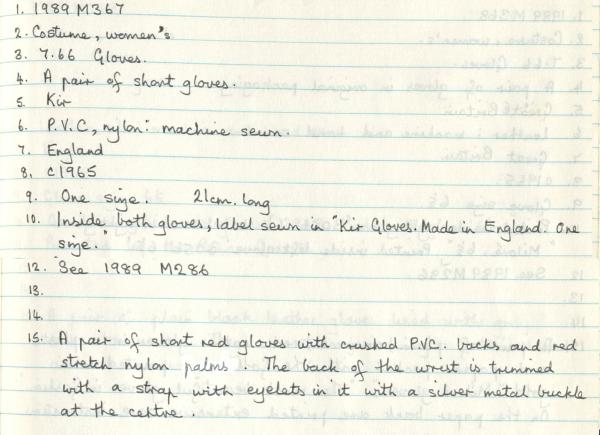 1. 1989 M367
2. Costume, women's
3. 7.66 Gloves.
4. A pair of short gloves.
5. Kir
6. P.V.C, nylon: machine sewn.
7. England
8. c1965
9. One size. 21cm. long
10. Inside both gloves, label sewn in "Kir Gloves. Made in England. One
size."
12. See 1989 M286
13.
14.
15. A pair of short red gloves with crushed P.V.C. backs and red
stretch nylon palms. The back of the wrist is trimmed
with a strap with eyelets in it with a silver metal buckle
at the centre.